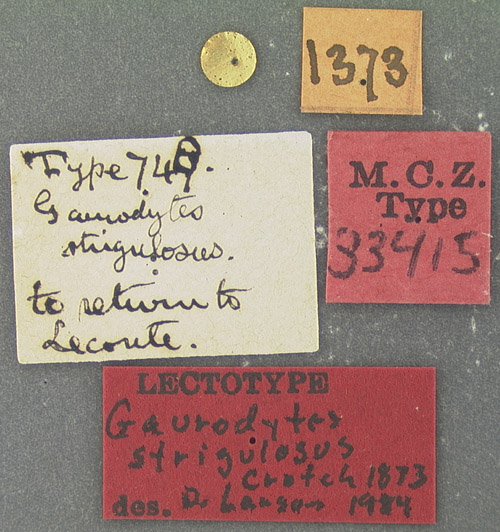 1373
Type 740.
Gaurodytes
strigulosus.
to return to
Leconte.
M.C.Z.
Type
33415
LECTOTYPE
Gaurodytes
strigulosus
Crotch 1873
des. D. Larson 1984